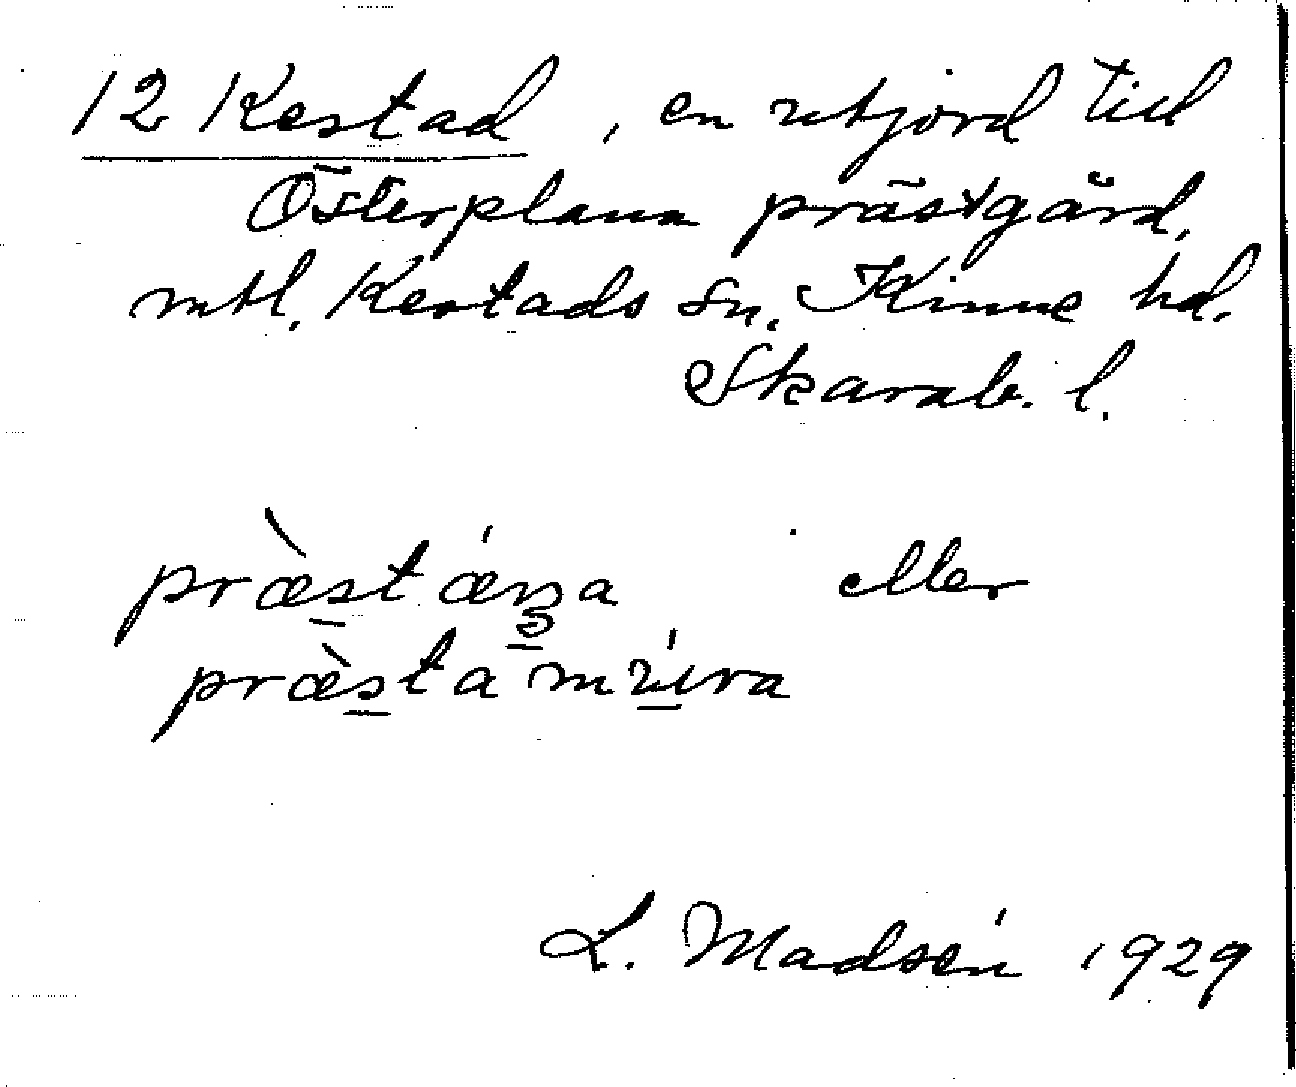 12 Kestad, en utjord till
Österplana prästgård,
mtl. Kestads sn. Kinne hd.
Skarab. l.
præ̀stǽŋa eller
præ̀stamúra
L. Madsén 1929